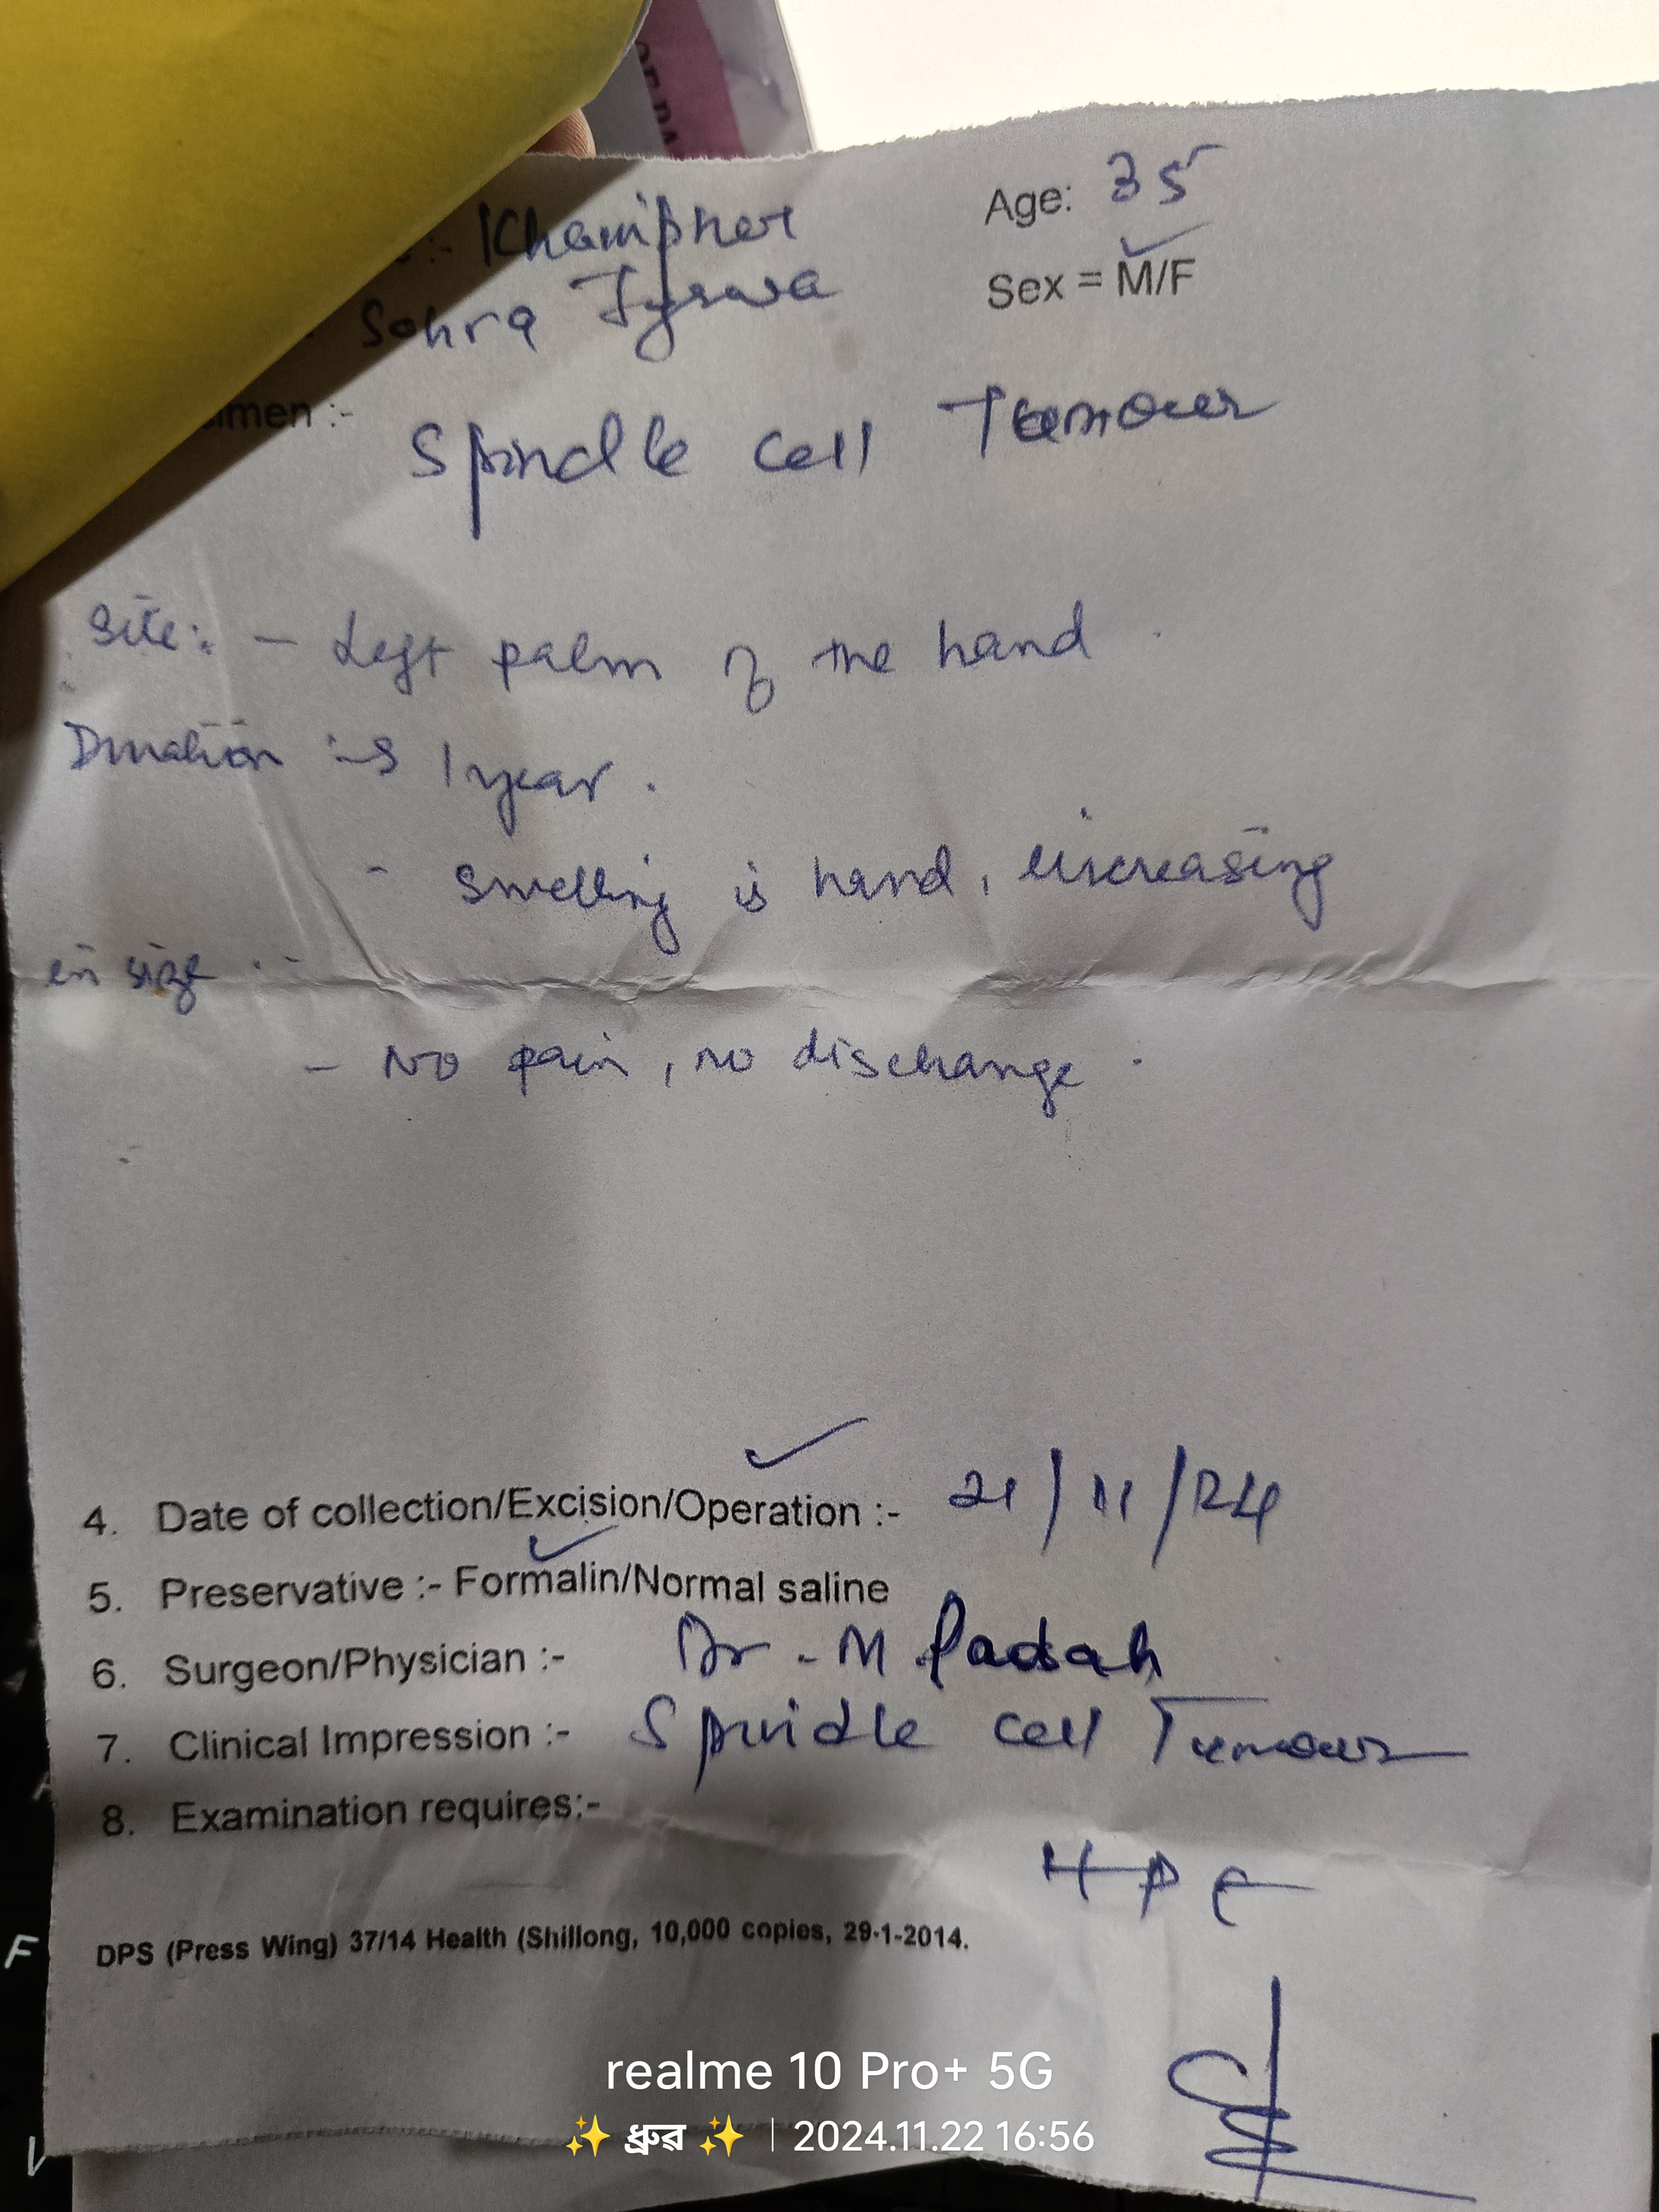 Khamipher
Age: 35
Sohra
Sex = M/F
imen :-
Spindle cell Tumour
Site :- Left palm of the hand.
Duration :- 1 year.
- Swelling is hand, increasing
in size.
- No pain, no discharge.
4. Date of collection/Excision/Operation :- 21/11/24
5. Preservative :- Formalin/Normal saline
6. Surgeon/Physician :- Dr. M Padah
7. Clinical Impression :- Spindle cell Tumour
8. Examination requires:-
HPE
DPS (Press Wing) 37/14 Health (Shillong, 10,000 copies, 29-1-2014.
F
V
realme 10 Pro+ 5G
✨ ধ্রুৱ ✨ | 2024.11.22 16:56